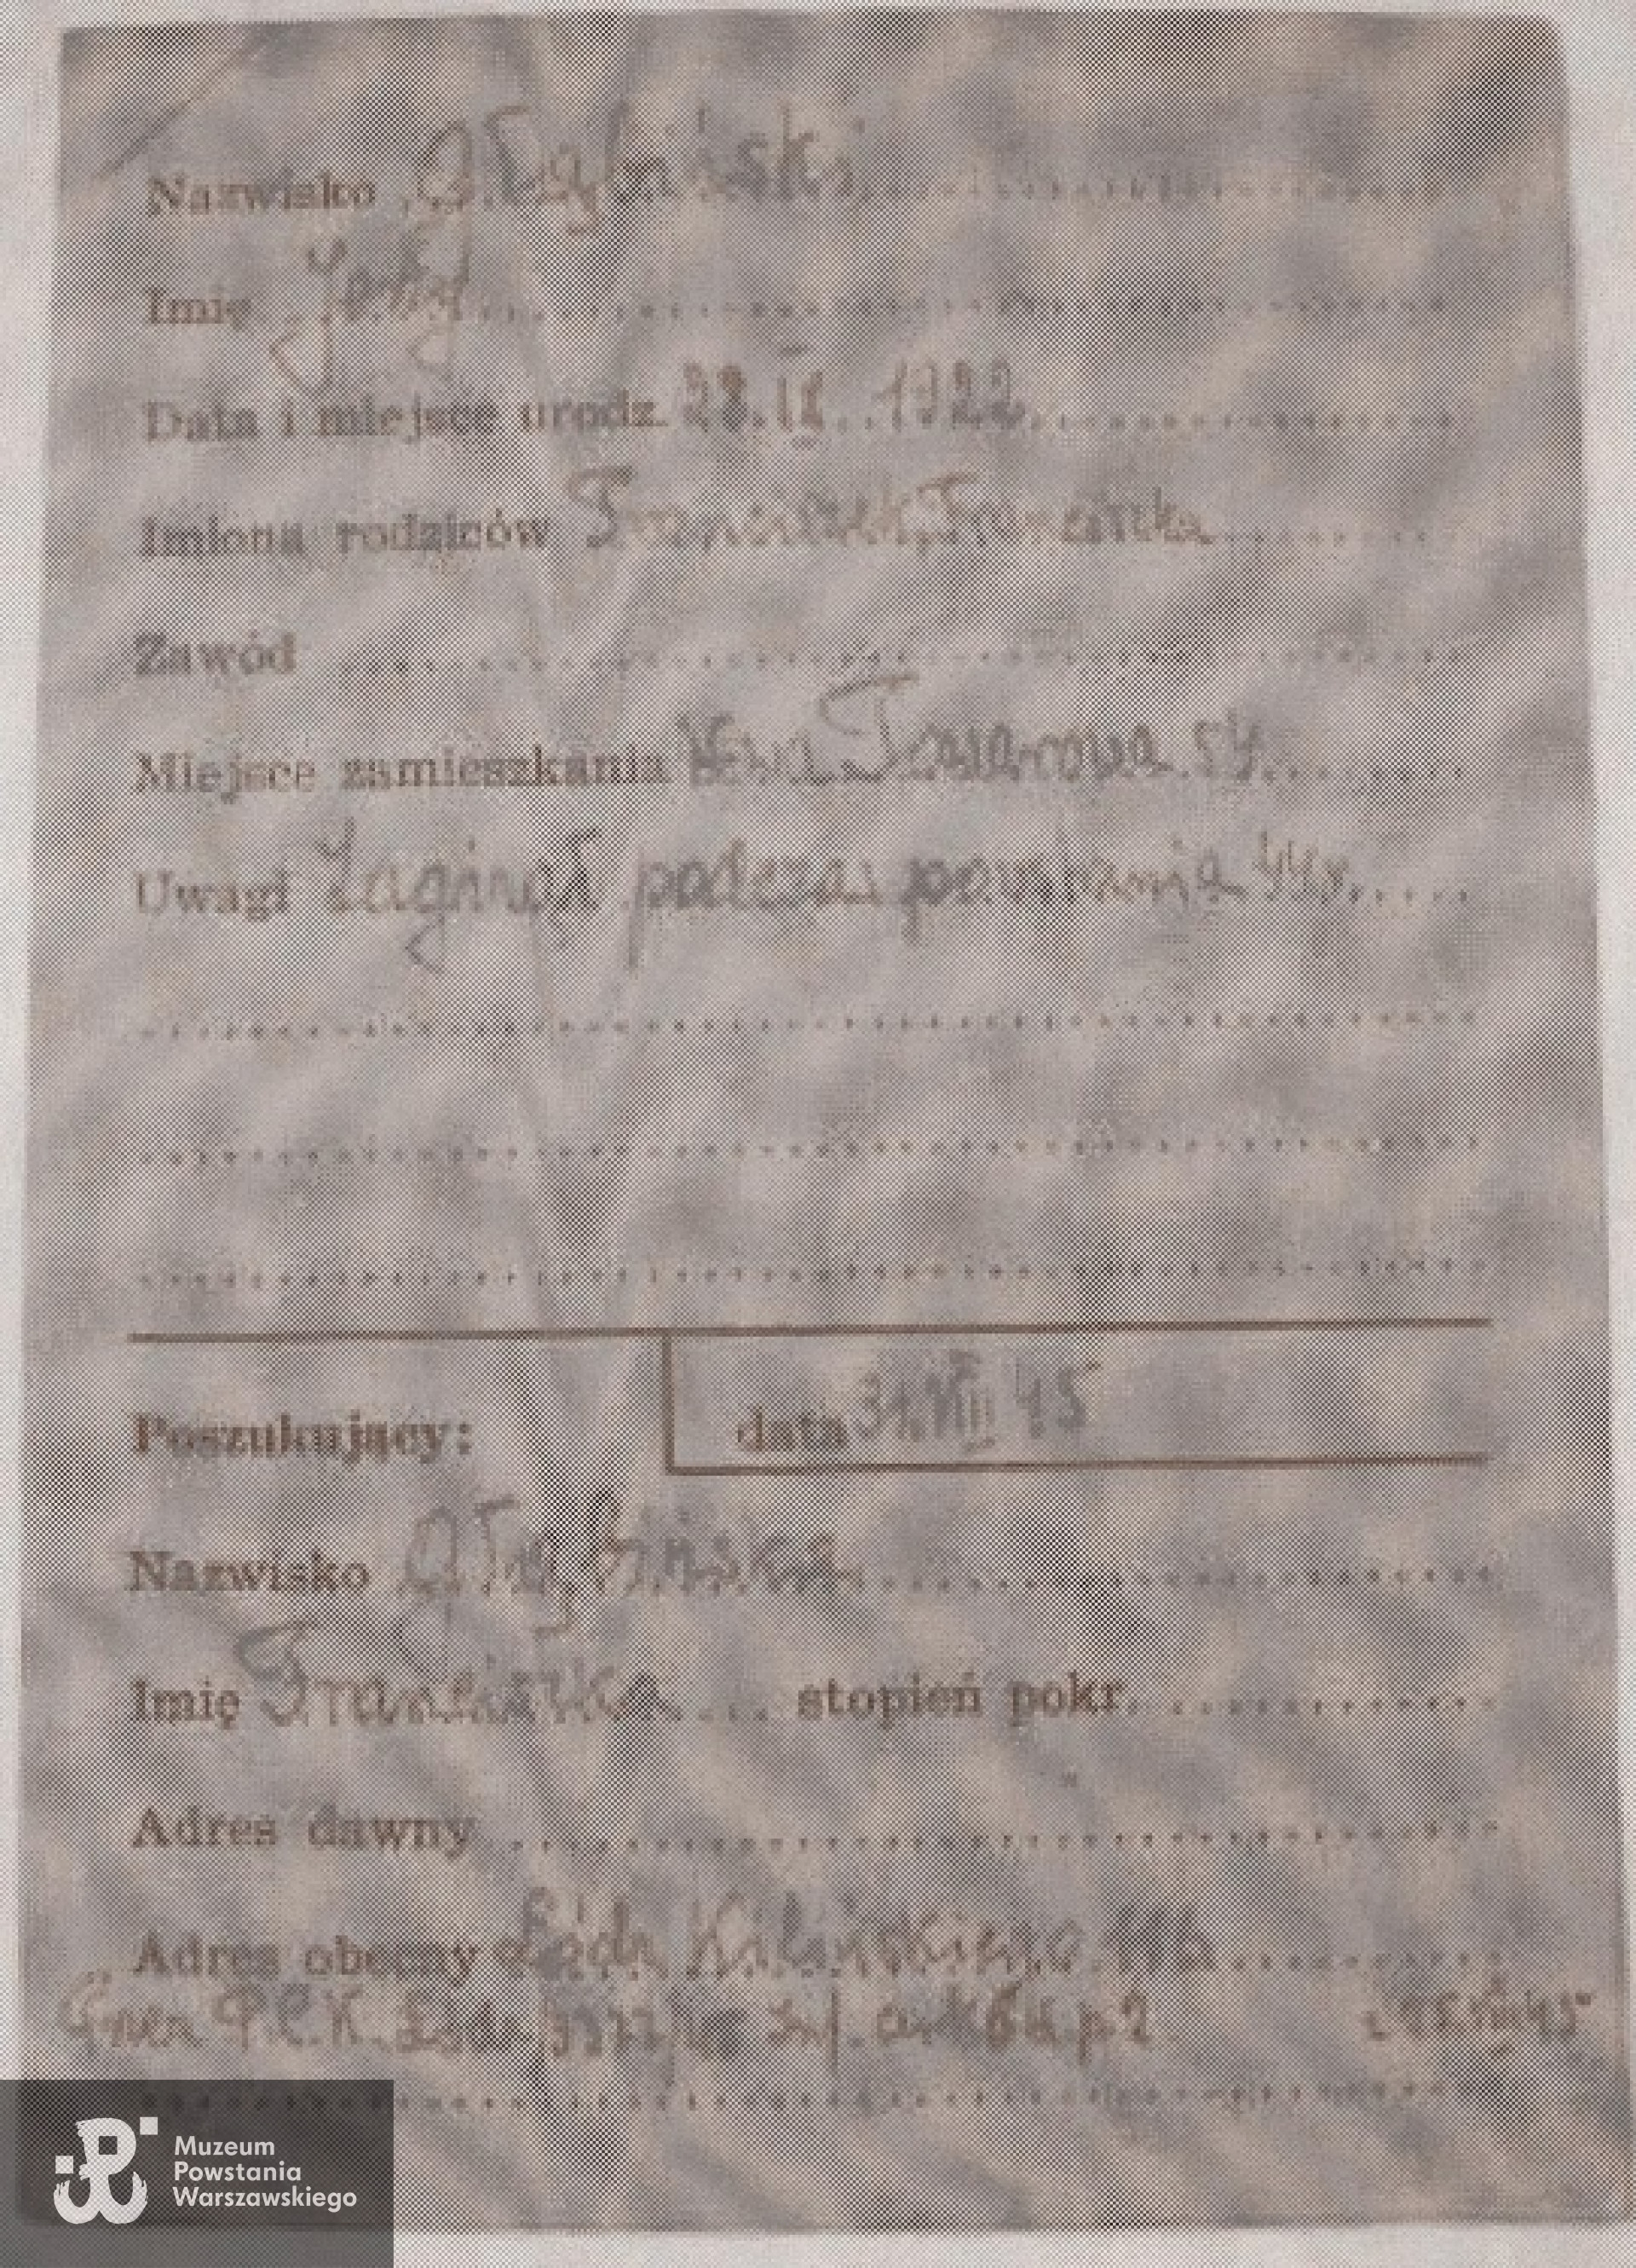 Nazwisko
Imię Jerzy
Data i miejsce urodz. 28.IX.1922
Imiona rodziców Franciszek, Franciszka
Zawód
Miejsce zamieszkania Wwa Towarowa 54
Uwagi Zaginął podczas powstania 44r.
Poszukujący:
data 31.VIII 45
Nazwisko
Imię Franciszka stopień pokr.
Adres dawny
Adres obecny Łódź Kilińskiego
P.C.K. Łódź
Muzeum
Powstania
Warszawskiego